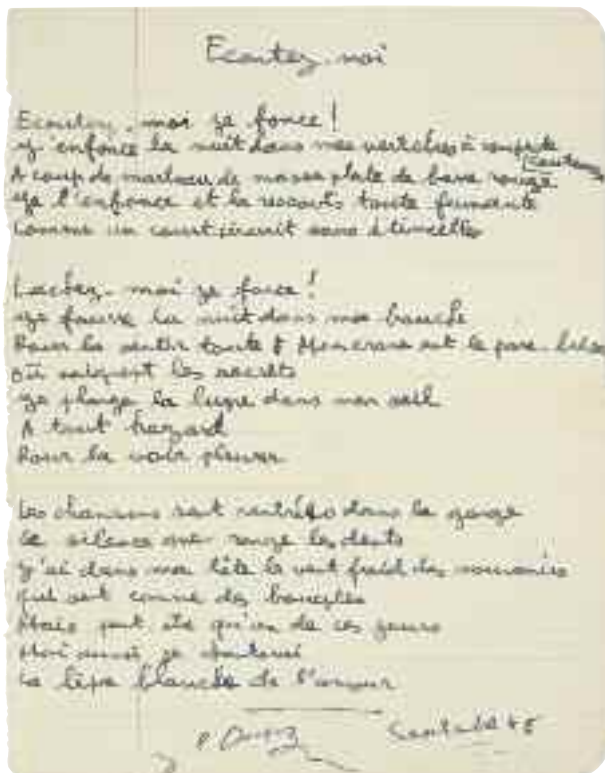 Ecoutez-moi
Ecoutez-moi je fonce !
J'enfonce la nuit dans mes vertèbres à coups de
couteau
A coup de marteau de masse plate de barre rouge
Je l'enfonce et la ressorts toute fumante
Comme un court circuit sans étincelles
Lachez-moi je fonce !
Je fourre la nuit dans ma bouche
Pour la sentir toute Mon crane est le
où saignent les secrets
Je plonge la lune dans mon oeil
A tout hazard
Pour la voir pleurer
Les chansons sont rentrées dans la gorge
Le silence me ronge les dents
J'ai dans ma tête le vent froid des souvenirs
qui sont comme des
Mais peut etre qu'un de ces jours
Moi aussi je chanterai
La lèpre blanche de l'amour